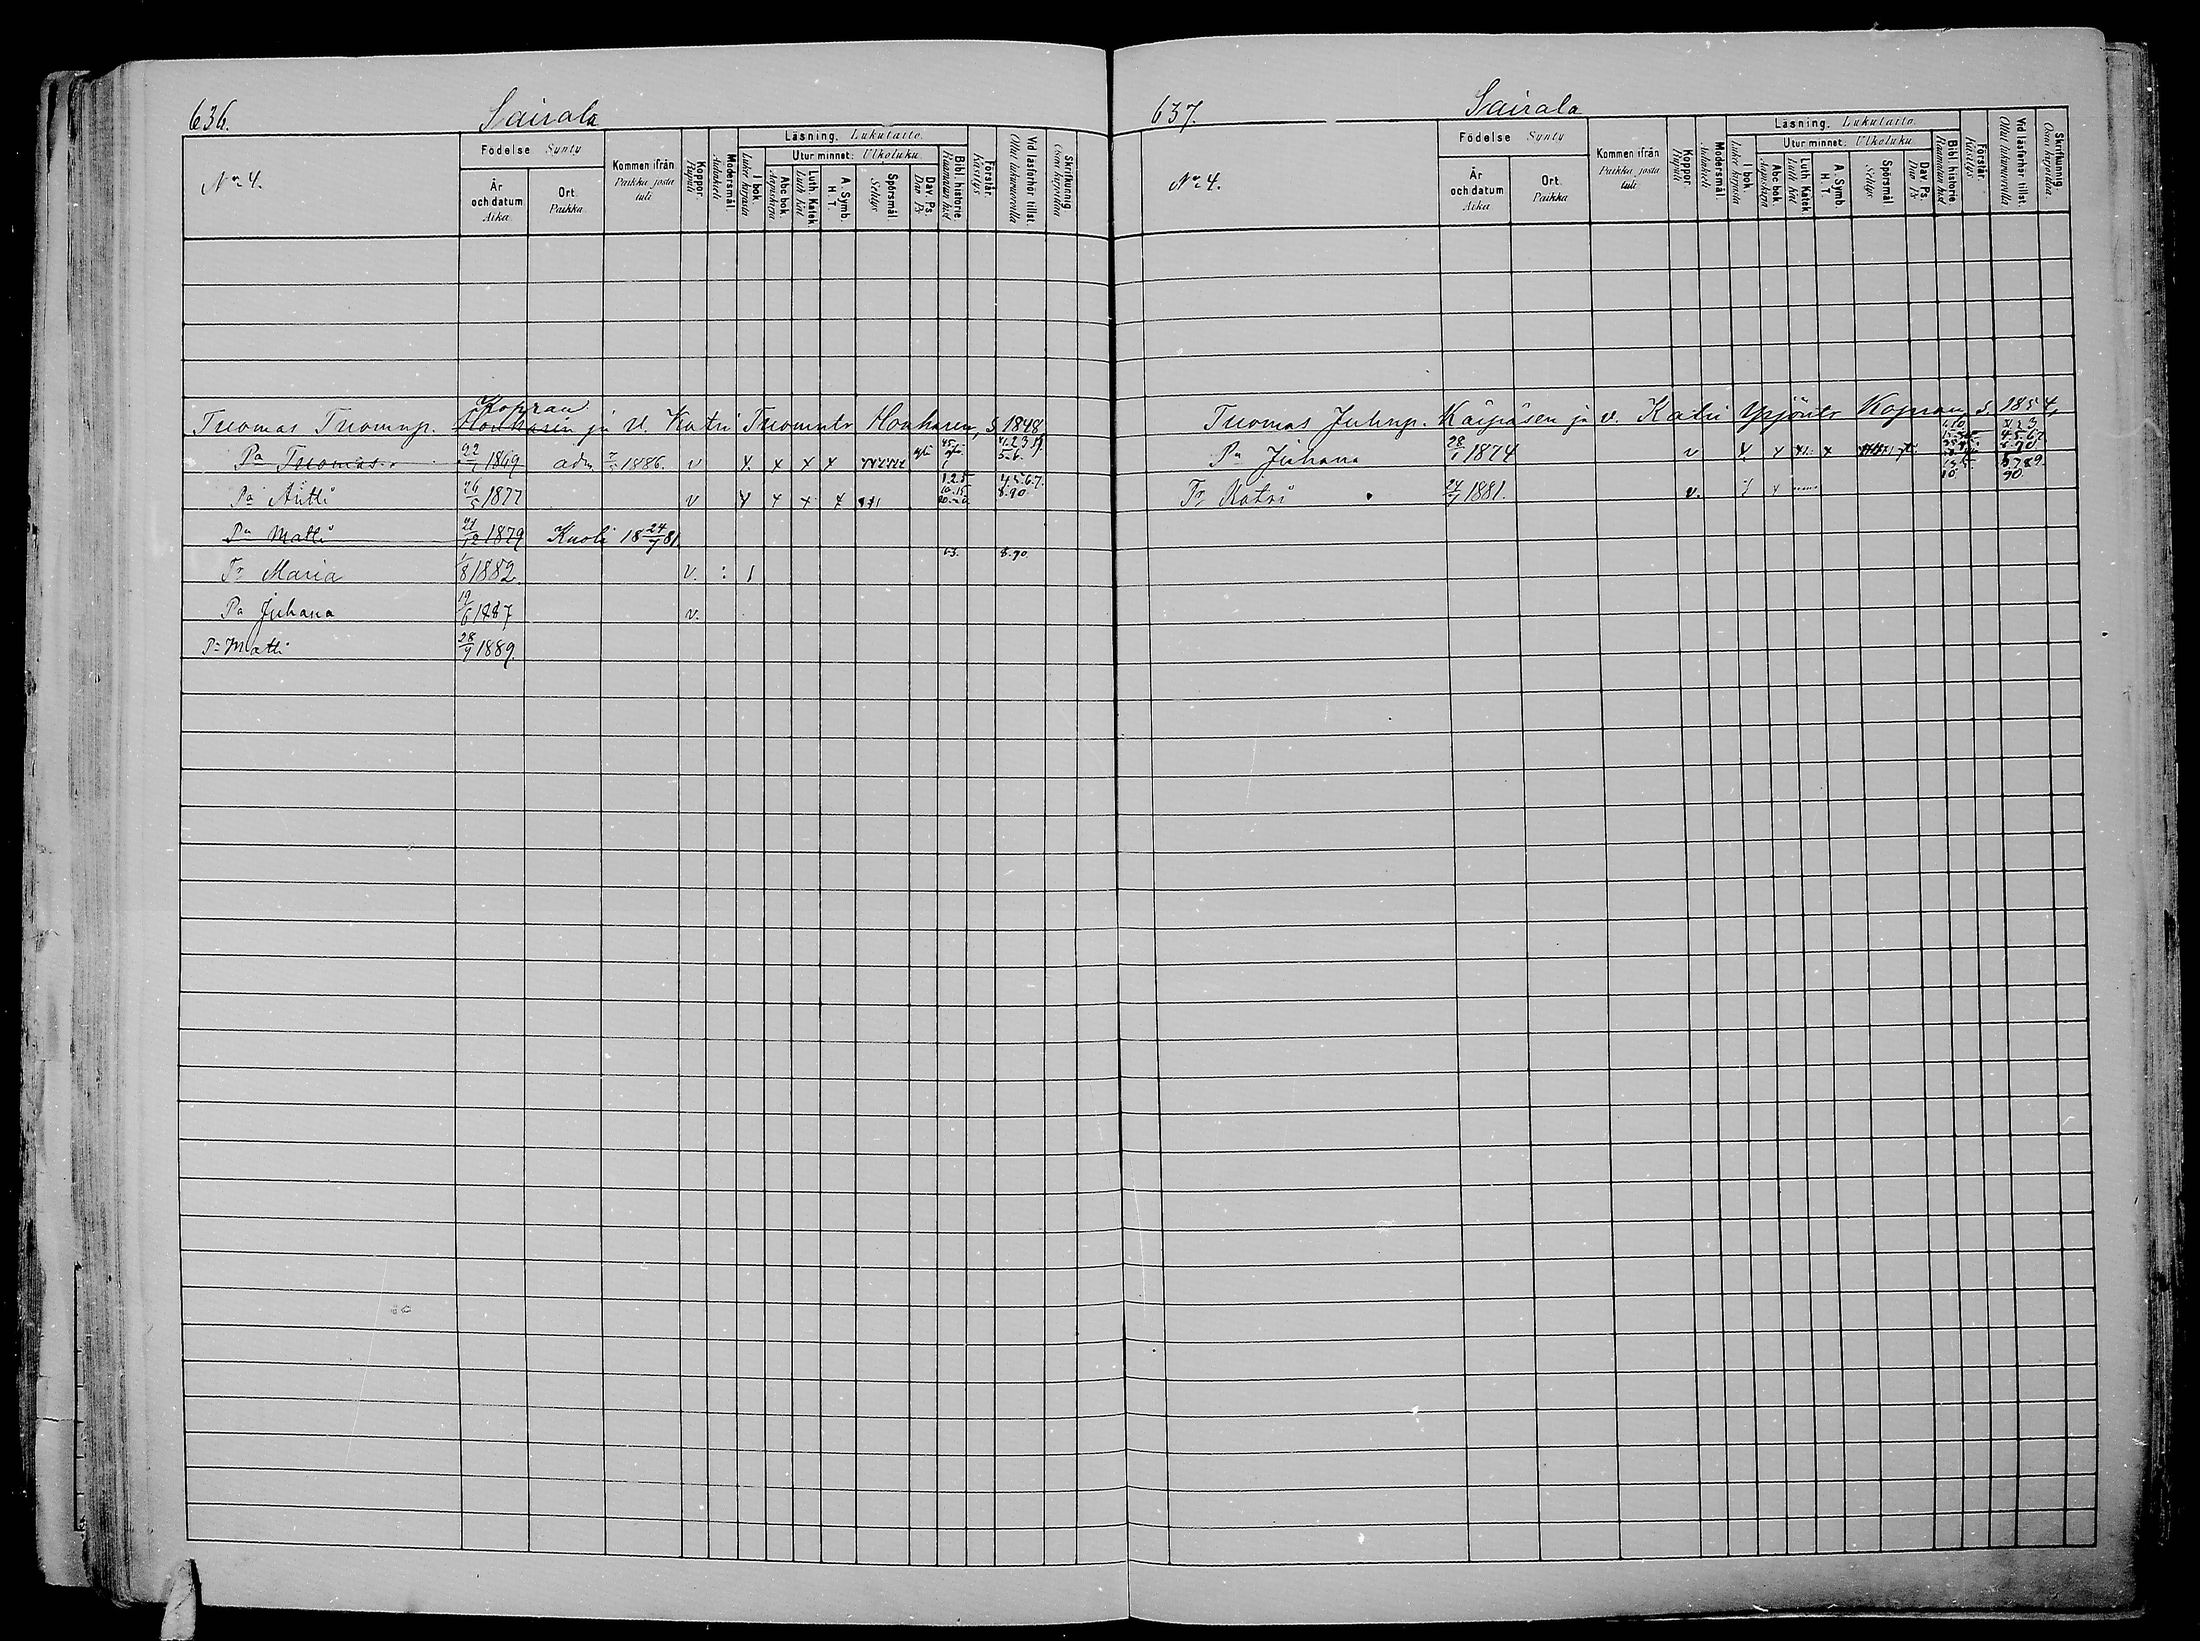 636.
Sairala
Nr 4.
Födelse Synty
År och datum Aika
Ort. Paikka
Kommen ifrån Paikka, josta tuli
Koppor. Rupuli
Modersmål. Äidinkieli
Läsning. Lukutaito.
I bok. Lukee kirjasta
Utur minnet: Ulkoluku
Abc bok. Aapiskirja
Luth. Katek. Luth. Kat
A. Symb. H. T.
Spörsmål Selitys
Dav. Ps. Dav. Ps
Bibl. historie Raamatun hist
Förstår. Käsitys
Vid läsförhör tillst. Ollut lukuvuoroilla
Skrifkunnig. Osaa kirjoittaa
Kopran
Tuomas Tuomnp. Honkasen ja v. Katri Tuomntr Honkasen, S 1848
Pa Tuomas 1869 adm 1886. v x x x x
Pa Antti 26 1877 v x x x x
Pa Matti 21/12 1879 Kuoli 18 24/7 81.
Tr Maria 1/8 1882. v. 8.90
Pa Juhana 19/6 1887 v.
Pa Matti 28/9 1889.
637.
Sairala
Nr 4.
Födelse Synty
År och datum Aika
Ort. Paikka
Kommen ifrån Paikka, josta tuli
Koppor. Rupuli
Modersmål. Äidinkieli
Läsning. Lukutaito.
I bok. Lukee kirjasta
Utur minnet: Ulkoluku
Abc bok. Aapiskirja
Luth. Katek. Luth. Kat
A. Symb. H. T.
Spörsmål Selitys
Dav. Ps. Dav. Ps
Bibl. historie Raamatun hist
Förstår. Käsitys
Vid läsförhör tillst. Ollut lukuvuoroilla
Skrifkunnig. Osaa kirjoittaa.
Tuomas Juhnp. Käipäsen ja v. Katri Yrjöntr Kopran, S. 1854,
Pa Juhana 28 1874 v x x x
Tr Katri 1881. v.